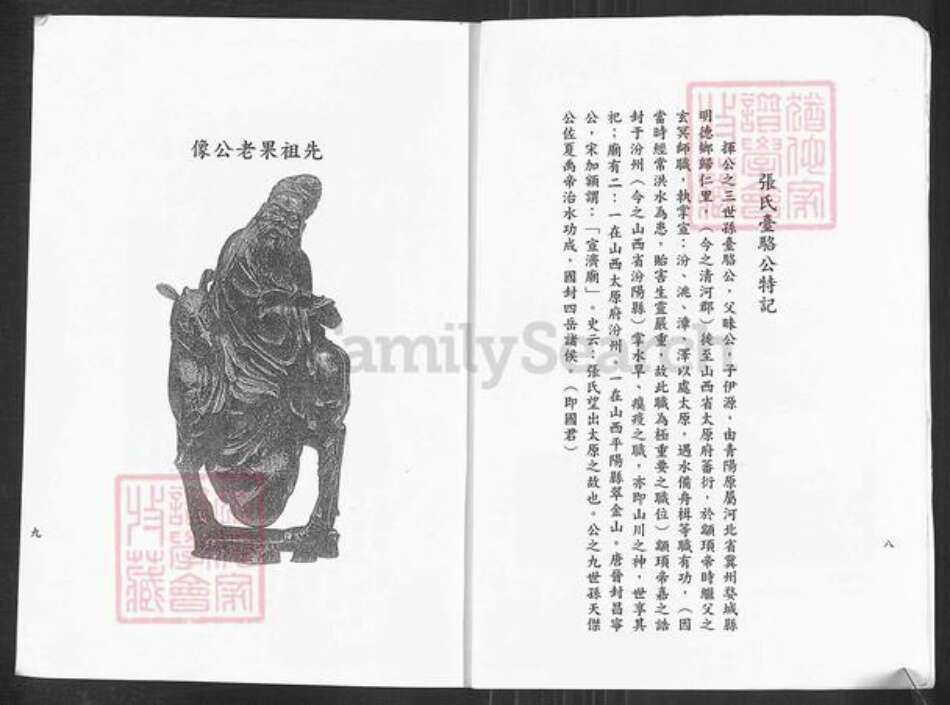 張氏臺駱公特記
揮公之三世孫臺駱公，父昧公，子伊源，由青陽原屬河北省冀州婺城縣
明德鄉歸仁里，（今之清河郡）徙至山西省太原府蕃衍，於顓頊帝時繼父之
玄冥師職，執掌宣：汾、洮、漳、澤以處太原，遇水備舟楫等職有功，（因
當時經常洪水為患，貽害生靈嚴重，故此職為極重要之職位）顓頊帝嘉之誥
封于汾州（今之山西省汾陽縣）掌水旱、瘼疫之職，亦即山川之神，世享其
祀；廟有二：一在山西太原府汾州，一在山西平陽縣翠金山。唐晉封昌寧
公，宋加額謂：「宣濟廟」。史云：張氏望出太原之故也。公之九世孫天傑
公佐夏禹帝治水功成，國封四岳諸侯。（即國君）
八
像公老果祖先
九
FamilySearch